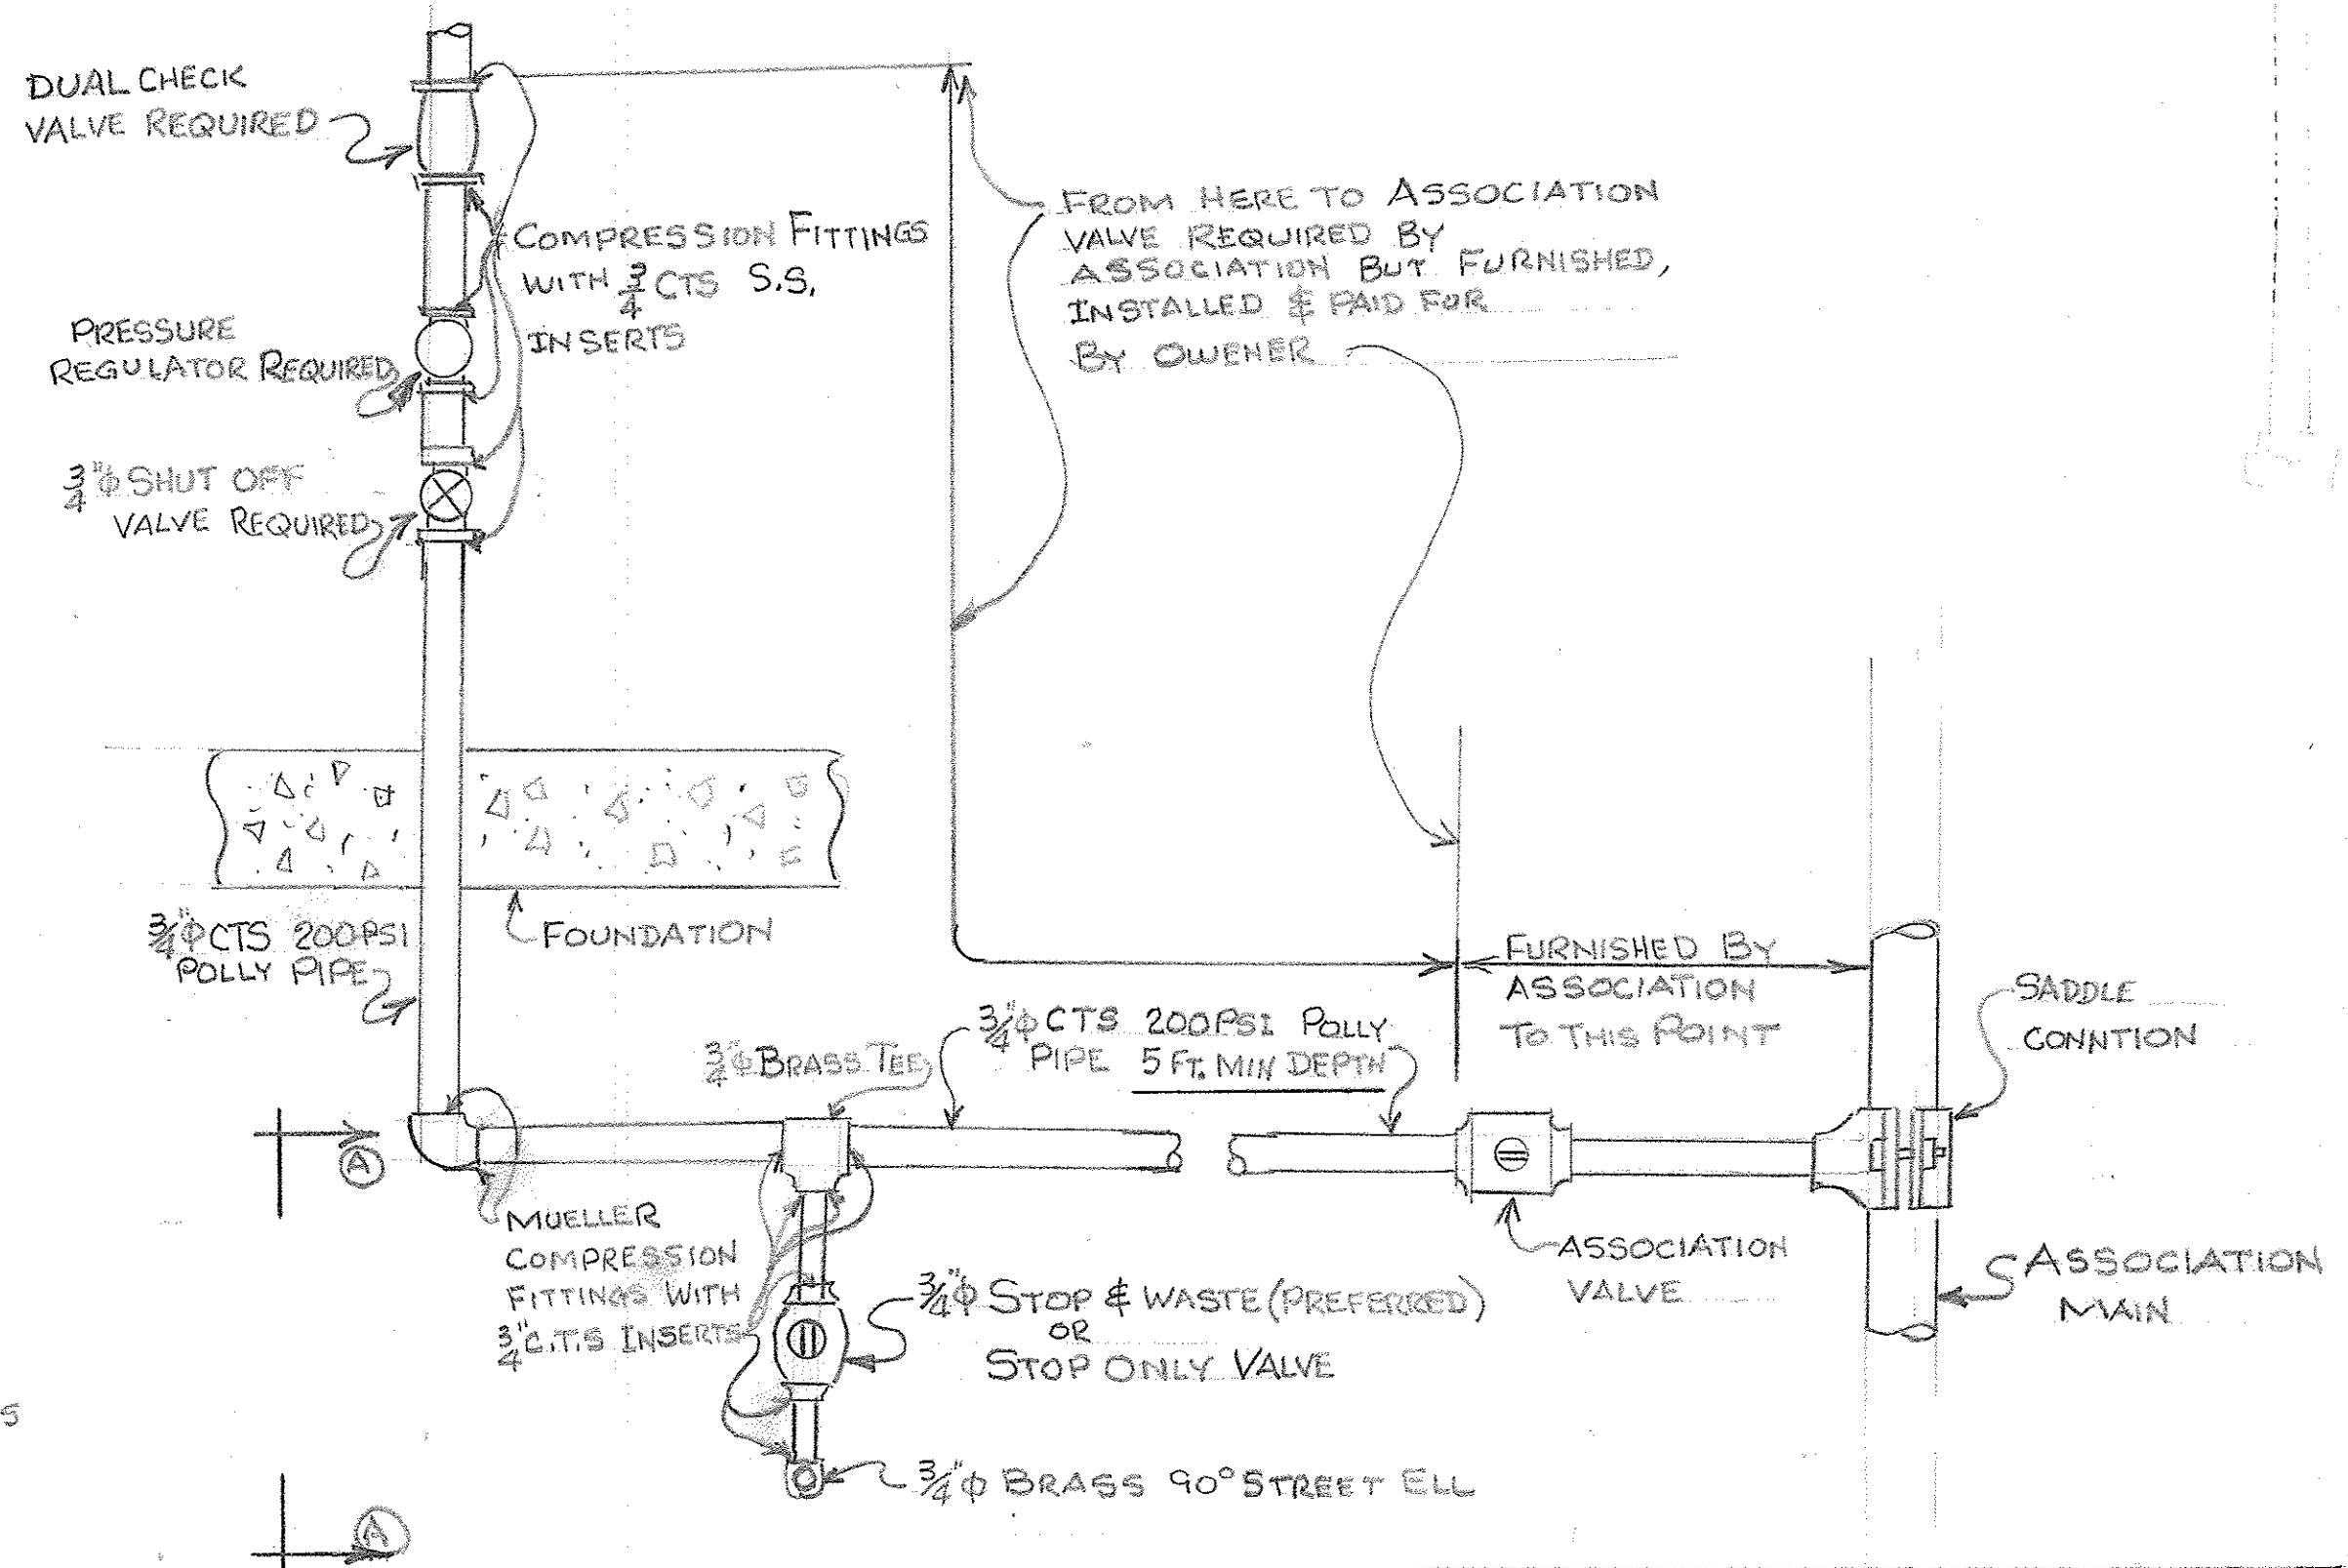 DUAL CHECK
VALVE REQUIRED
COMPRESSION FITTINGS
WITH 3/4 CTS S.S.
INSERTS
PRESSURE
REGULATOR REQUIRED
3/4"φ SHUT OFF
VALVE REQUIRED
FROM HERE TO ASSOCIATION
VALVE REQUIRED BY
ASSOCIATION BUT FURNISHED,
INSTALLED & PAID FOR
BY OWENER
3/4"φ CTS 200PSI
POLLY PIPE
FOUNDATION
FURNISHED BY
ASSOCIATION
TO THIS POINT
SADDLE
CONNTION
3/4"φ BRASS TEE
3/4"φ CTS 200PSI POLLY
PIPE 5 FT. MIN DEPTH
A
MUELLER
COMPRESSION
FITTINGS WITH
3/4" C.T.S INSERTS
ASSOCIATION
VALVE
ASSOCIATION
MAIN
3/4"φ STOP & WASTE (PREFERRED)
OR
STOP ONLY VALVE
S
3/4"φ BRASS 90° STREET ELL
A